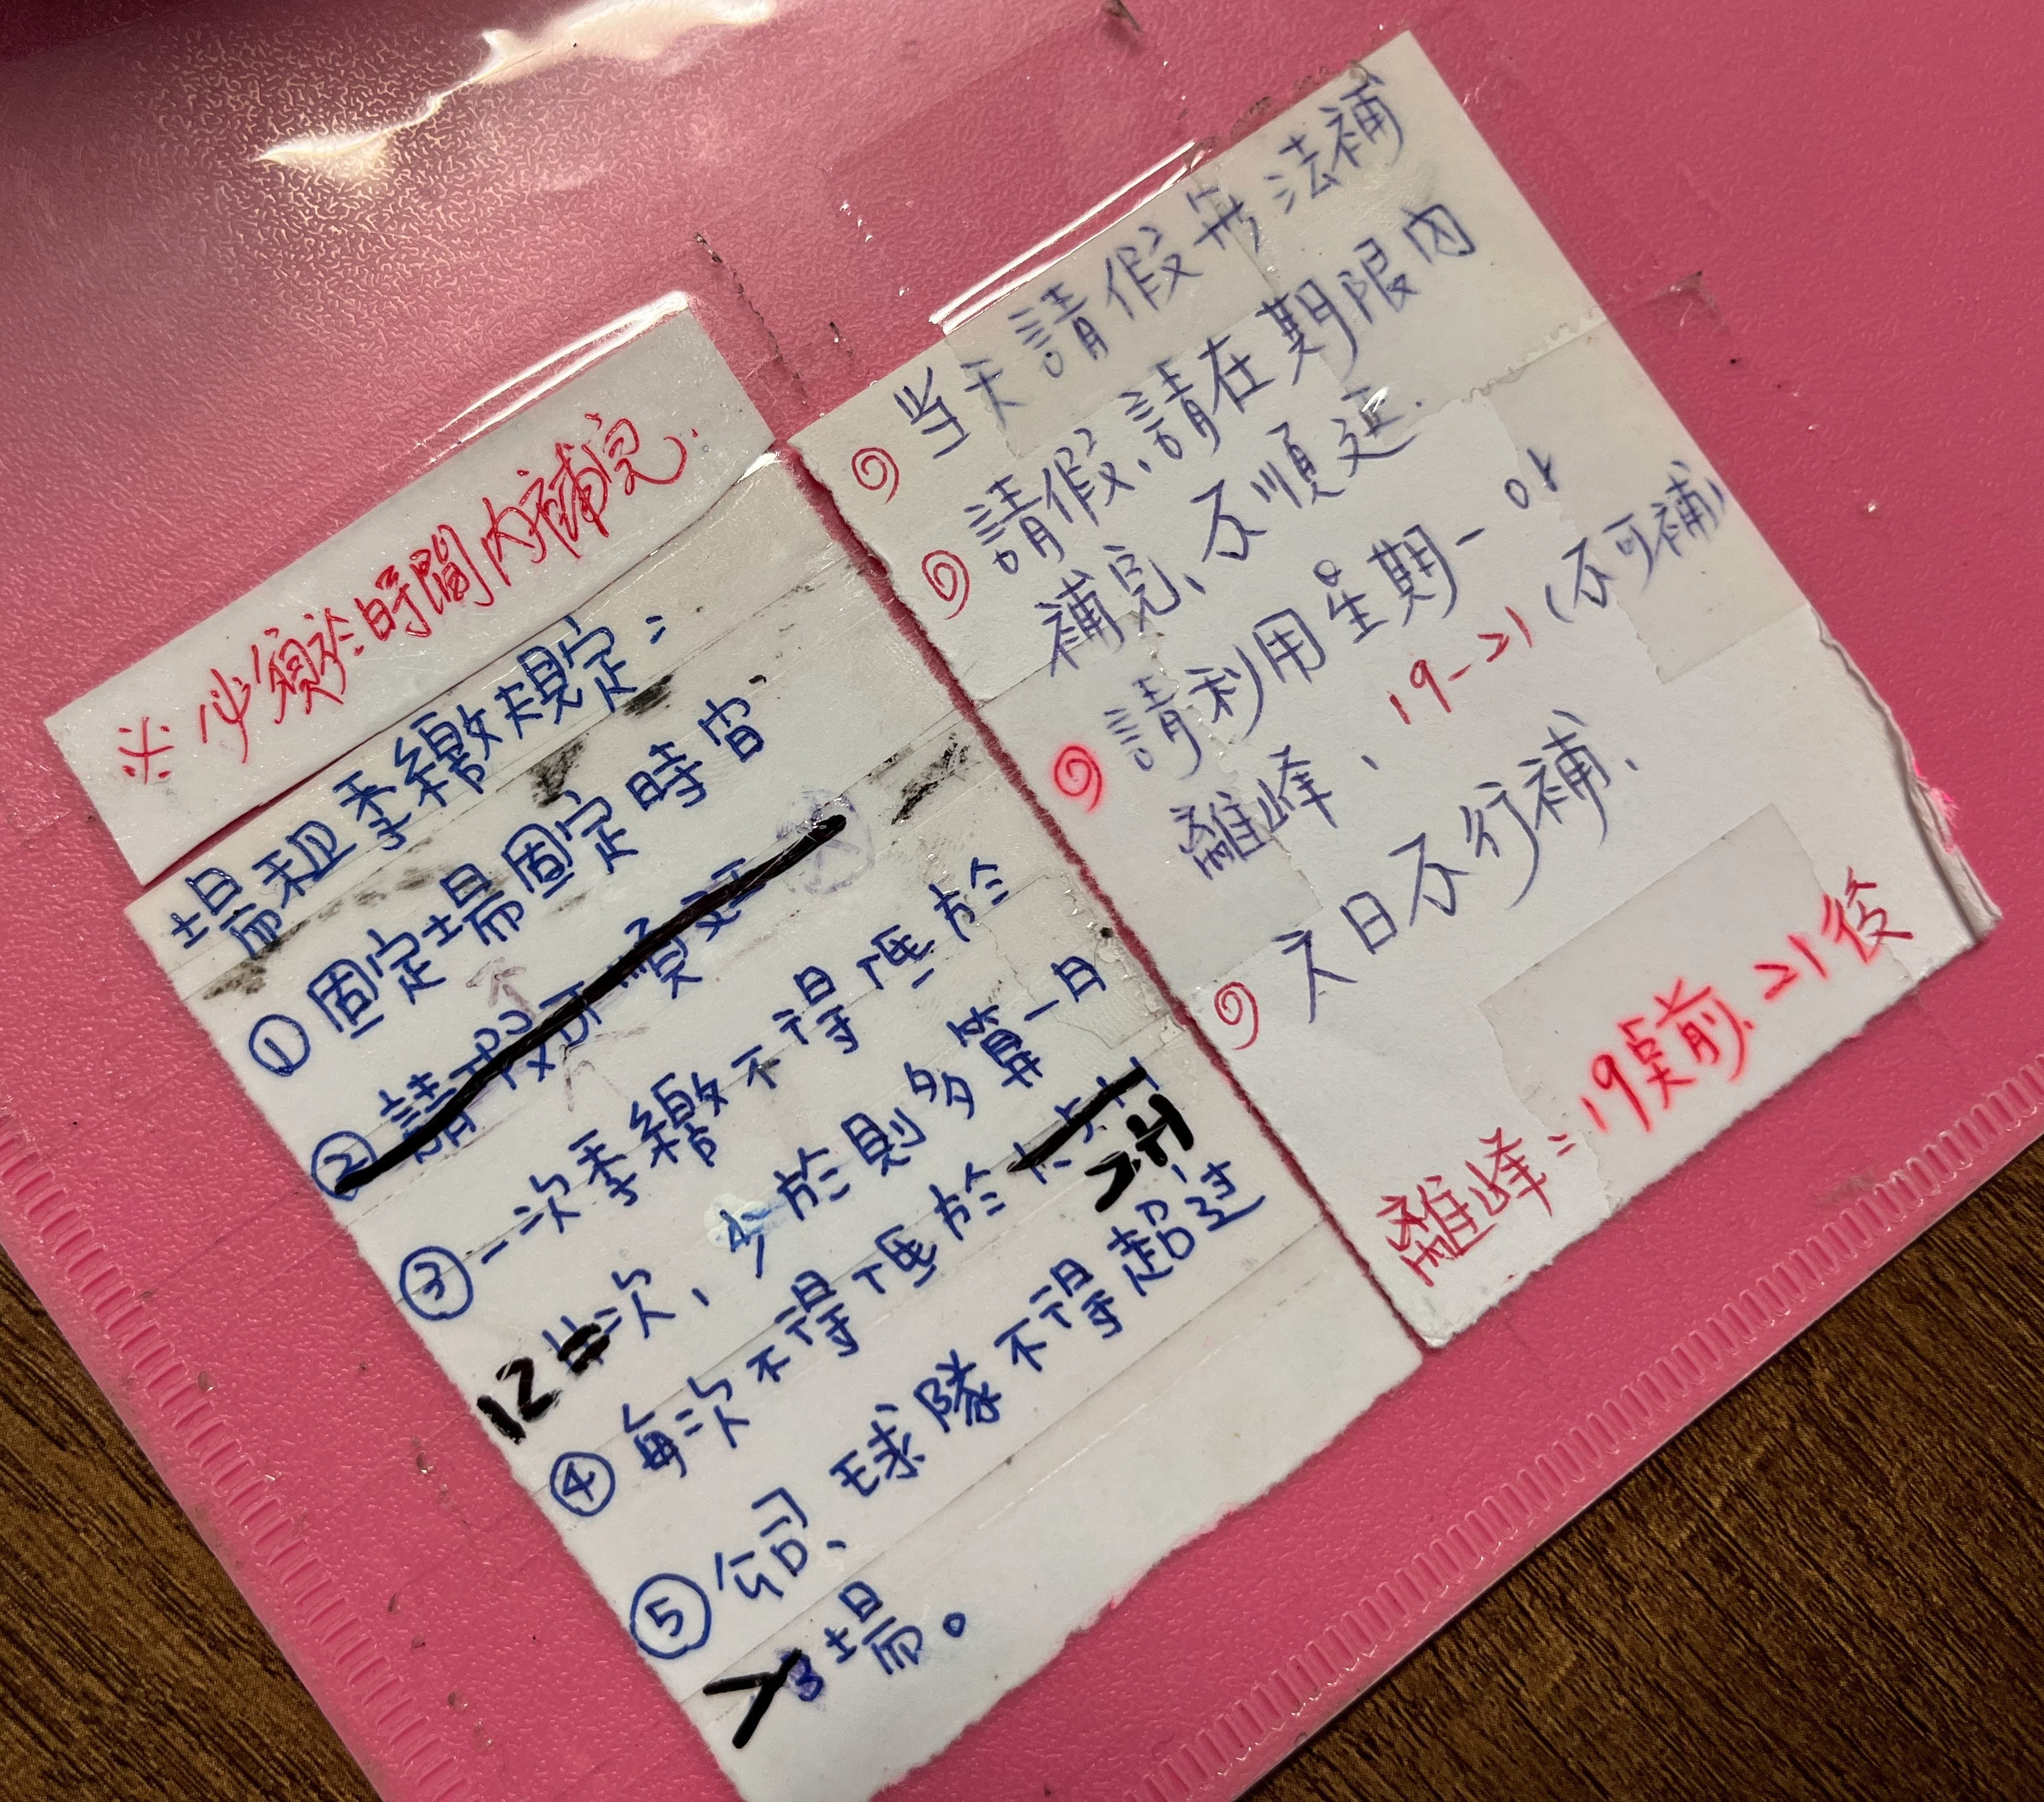 ※必須於時間內補完.
場租季繳規定:
①固定場固定時宙
②請假可順延
③一次季繳不得低於
12次,少於則多算一日
④每次不得低於
2H
⑤句、球隊不得超过
場。
当天請假無法補
請假、請在期限內
補完、不順延.
請利用星期一or
離峰、19-21(不可補)
六日不行補、
離峰=19點前、21後